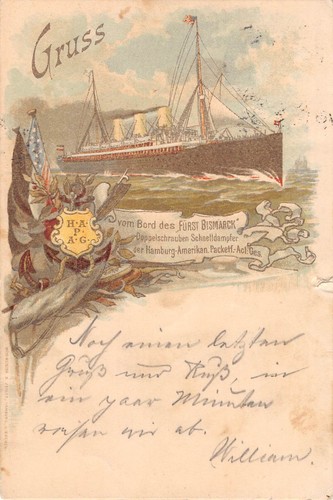 Gruss
vom Bord des „FÜRST BISMARCK"
Doppelschrauben Schnelldampfer
der Hamburg-Amerikan. Packetf.-Act. Ges.
H. A.
P.
A. G.
Noch einen letzten
Gruß und Kuß, in
ein paar Minuten
reisen wir ab.
William.